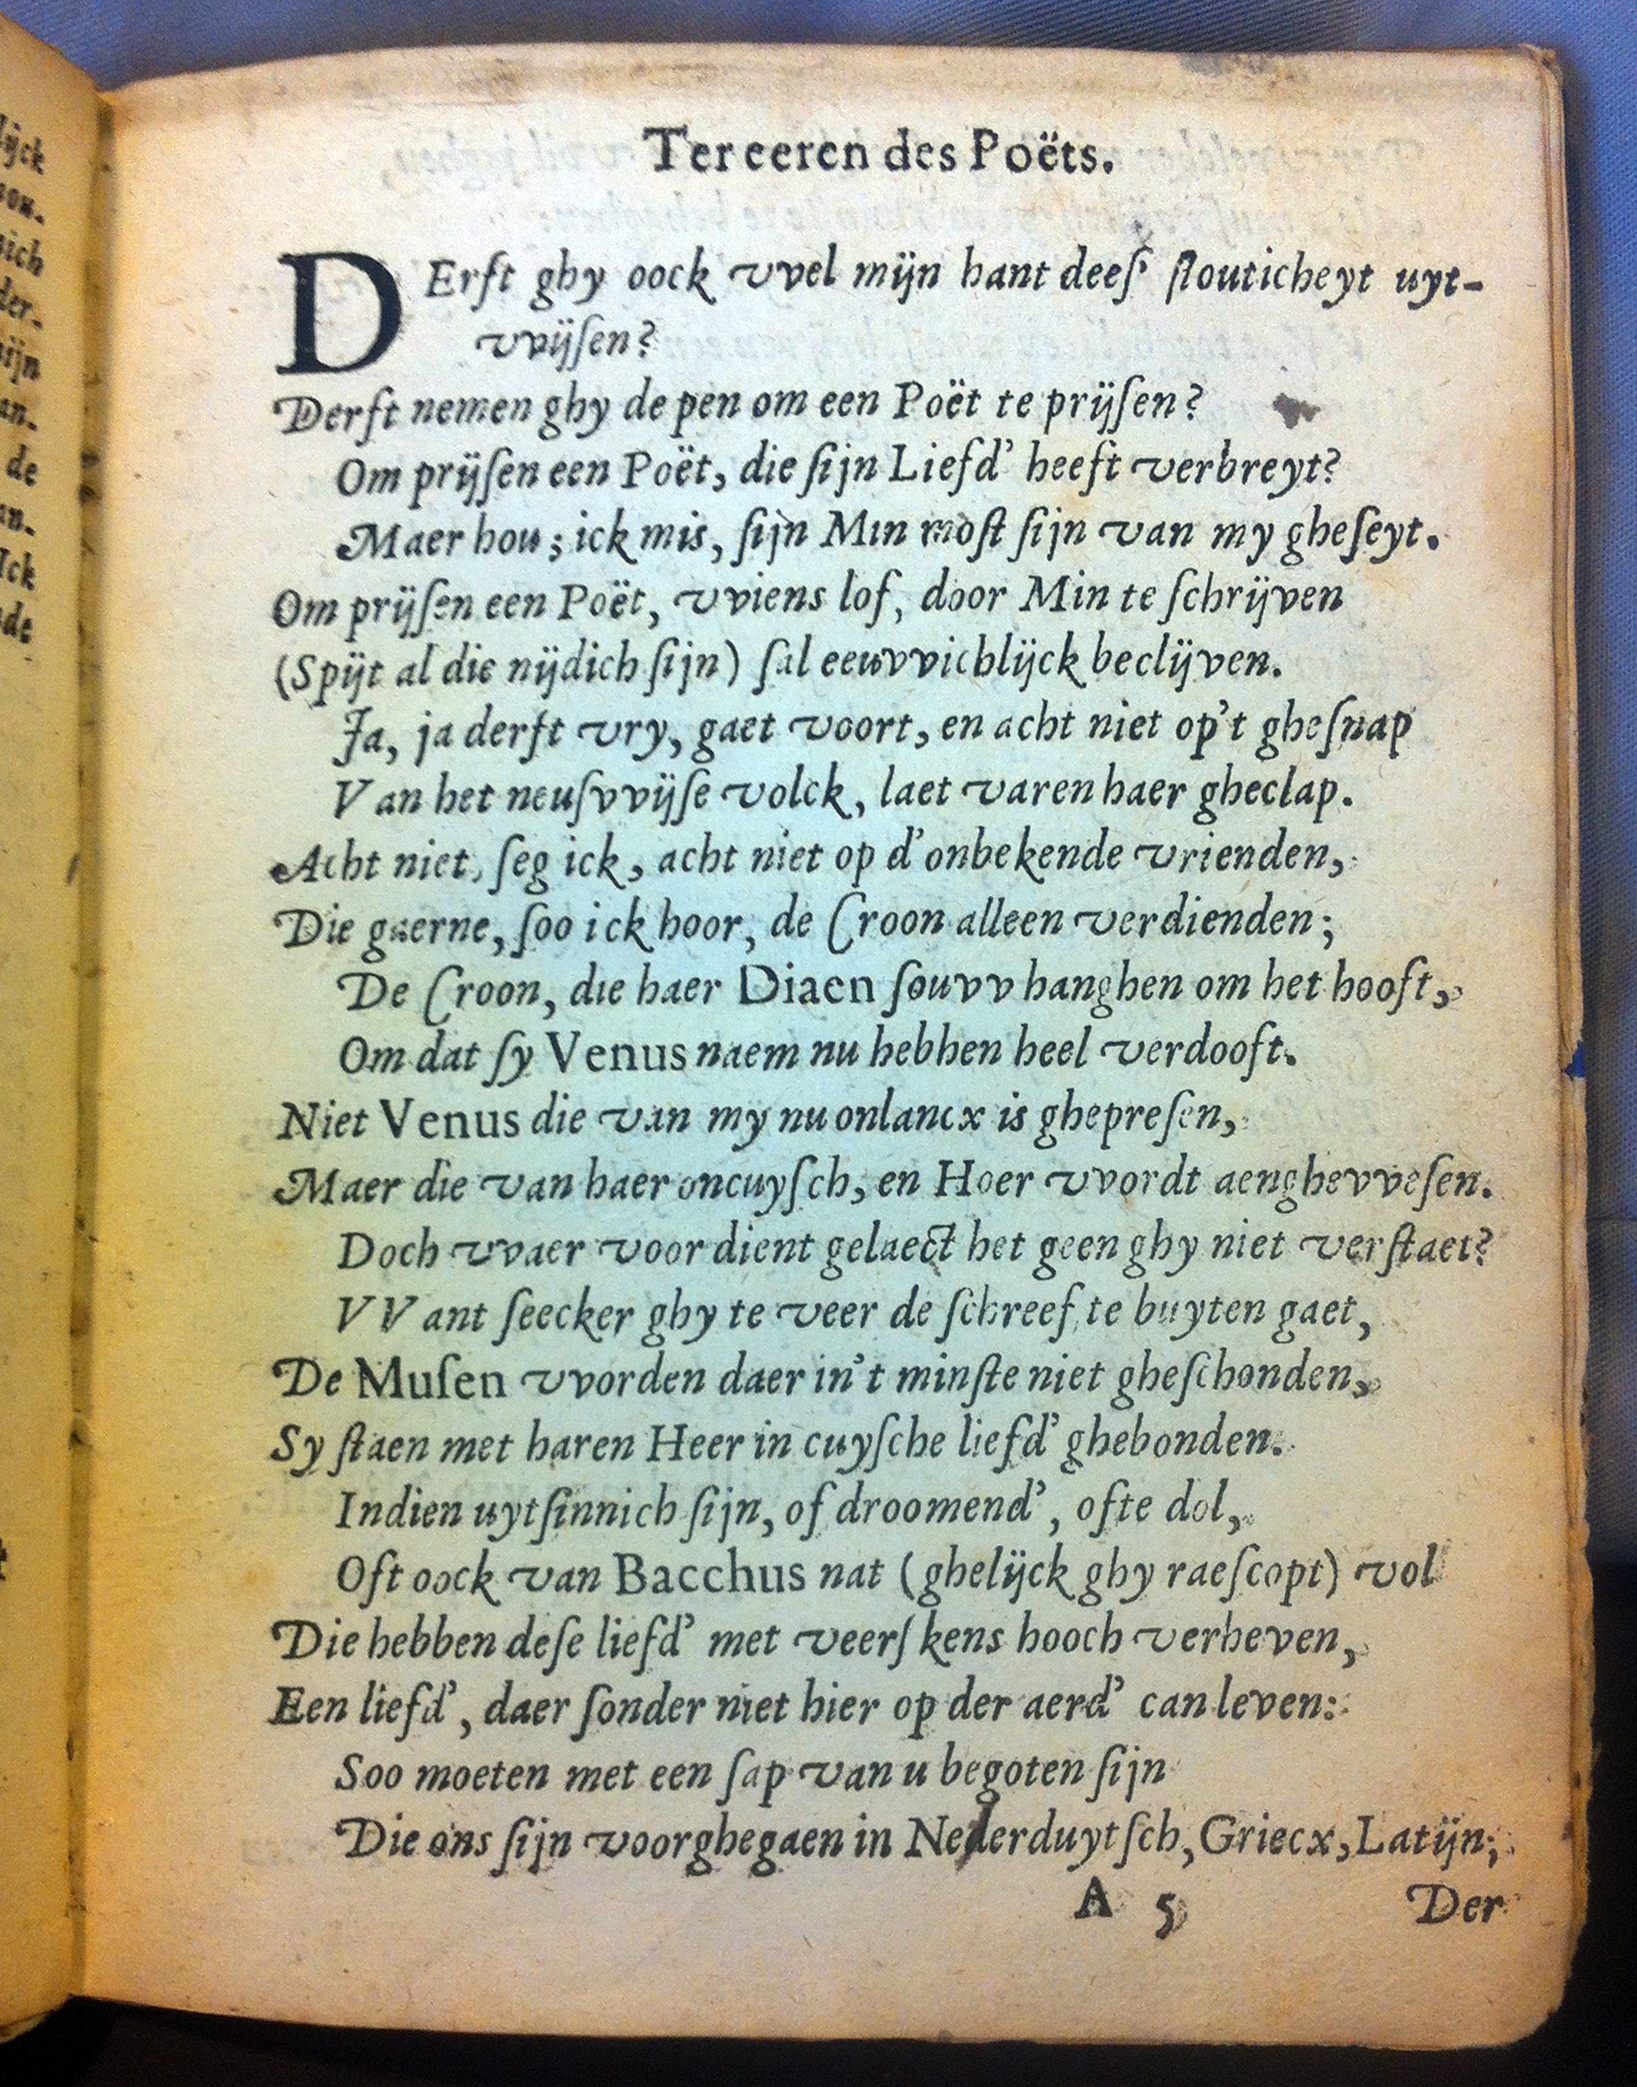 Ter eeren des Poëts.
DErſt ghy oock vvel mijn hant deeſ' ſtouticheyt uyt-
vvijſen?
Derſt nemen ghy de pen om een Poët te prijſen?
Om prijſen een Poët, die ſijn Liefd' heeft verbreyt?
Maer hou; ick mis, ſijn Min moſt ſijn van my gheſeyt.
Om prijſen een Poët, vviens lof, door Min te ſchrijven
(Spijt al die nijdich ſijn) ſal eeuvvichlijck beclijven.
Ja, ja derft vry, gaet voort, en acht niet op't gheſnap
Van het neuſvvijſe volck, laet varen haer gheclap.
Acht niet, ſeg ick, acht niet op d'onbekende vrienden,
Die gaerne, ſoo ick hoor, de Croon alleen verdienden;
De Croon, die haer Diaen ſouvv hanghen om het hooft,
Om dat ſy Venus naem nu hebben heel verdooft.
Niet Venus die van my nu onlancx is ghepreſen,
Maer die van haer oncuyſch, en Hoer vvordt aenghevveſen.
Doch vvaer voor dient gelaect het geen ghy niet verſtaet?
VVant ſeecker ghy te veer de ſchreef te buyten gaet,
De Muſen vvorden daer in't minſte niet gheſchonden,
Sy ſtaen met haren Heer in cuyſche liefd' ghebonden.
Indien uytſinnich ſijn, of droomend', ofte dol,
Oft oock van Bacchus nat (ghelijck ghy raeſcopt) vol
Die hebben deſe liefd' met veerſkens hooch verheven,
Een liefd', daer ſonder niet hier op der aerd' can leven:
Soo moeten met een ſap van u begoten ſijn
Die ons ſijn voorghegaen in Nederduytſch, Griecx, Latijn;
A 5 Der